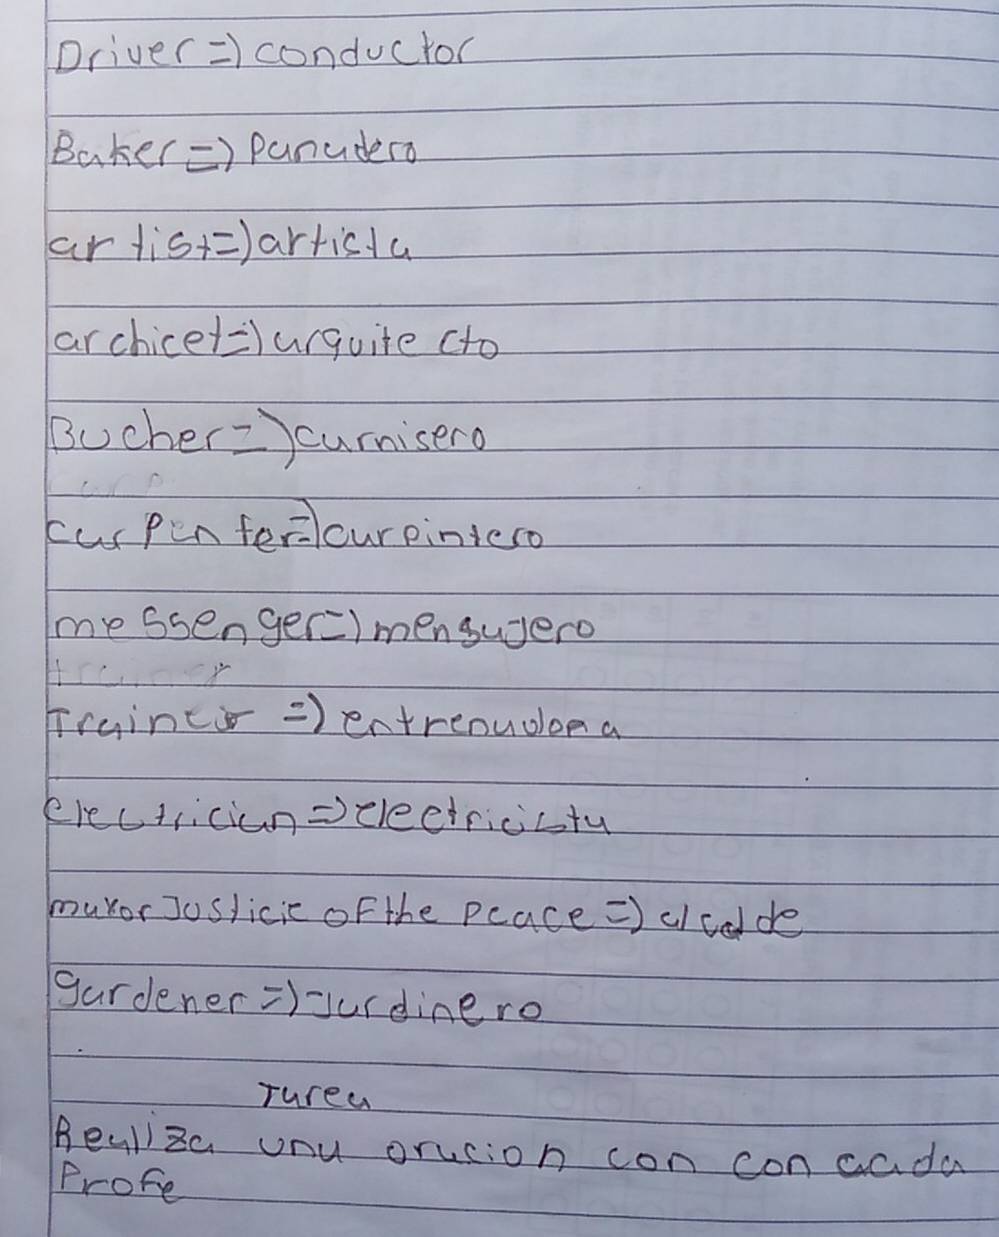 Driver => conductor
Baker => Panadero
artist => artista
archicet => arquitecto
Bucher => carnisero
carpenter => carpintero
messenger => mensajero
trainer
Trainer => entrenadora
electrician => electricista
mayor Justicie of the peace => alcalde
gardener => Jardinero
Tarea
Realiza una oracion con con cada
Profe